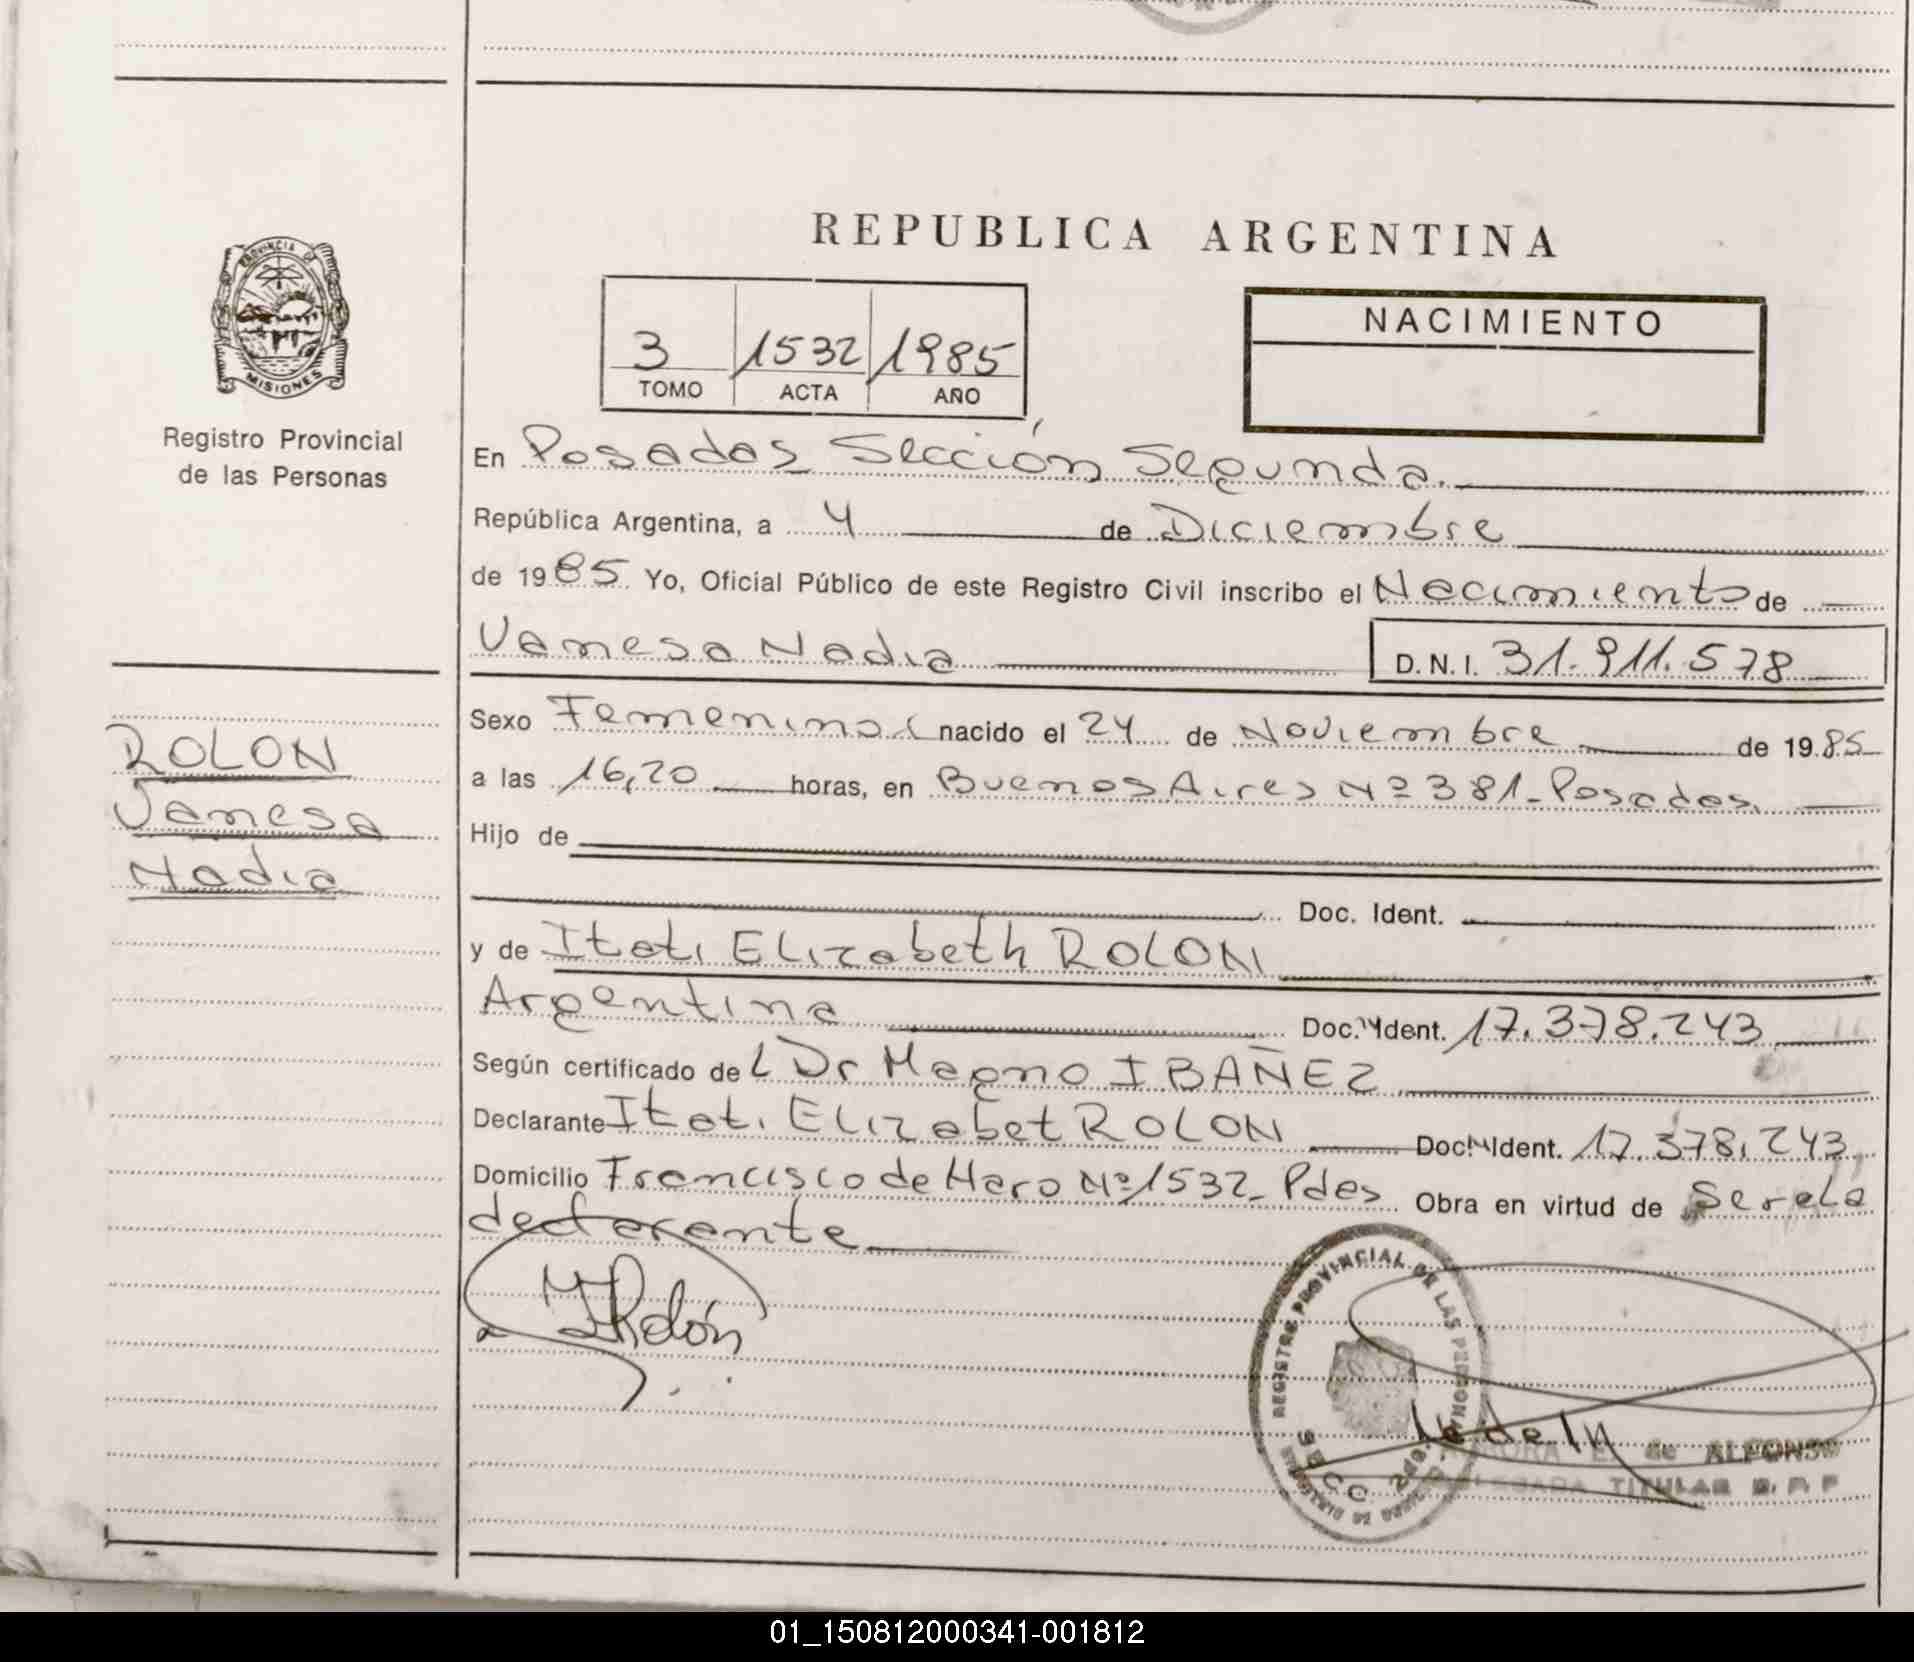 REPUBLICA ARGENTINA
PROVINCIA DE
MISIONES
Registro Provincial
de las Personas
3 1532 1985
TOMO ACTA AÑO
NACIMIENTO
En Posadas Sección Segunda.
República Argentina, a 4 de Diciembre
de 1985 Yo, Oficial Público de este Registro Civil inscribo el Nacimiento de
Vanesa Nadia D.N.I. 31.911.578
Sexo Femenino nacido el 24 de Noviembre de 1985
a las 16,20 horas, en Buenos Aires Nº 381-Posadas.
Hijo de
Doc. Ident.
y de Itati Elizabeth ROLON
Argentina Doc. Ident. 17.378.243
Según certificado del Dr Magno IBAÑEZ
Declarante Itati Elizabet ROLON Doc. Ident. 17.378.243
Domicilio Francisco de Haro Nº 1532- Pdas Obra en virtud de Ser ela
declarante
ROLON
Vanesa
Nadia
IRolón
REGISTRO PROVINCIAL DE LAS PERSONAS
SECC. 2da.
de ALFONSO
DELEGADA TITULAR R. P. P
01_150812000341-001812